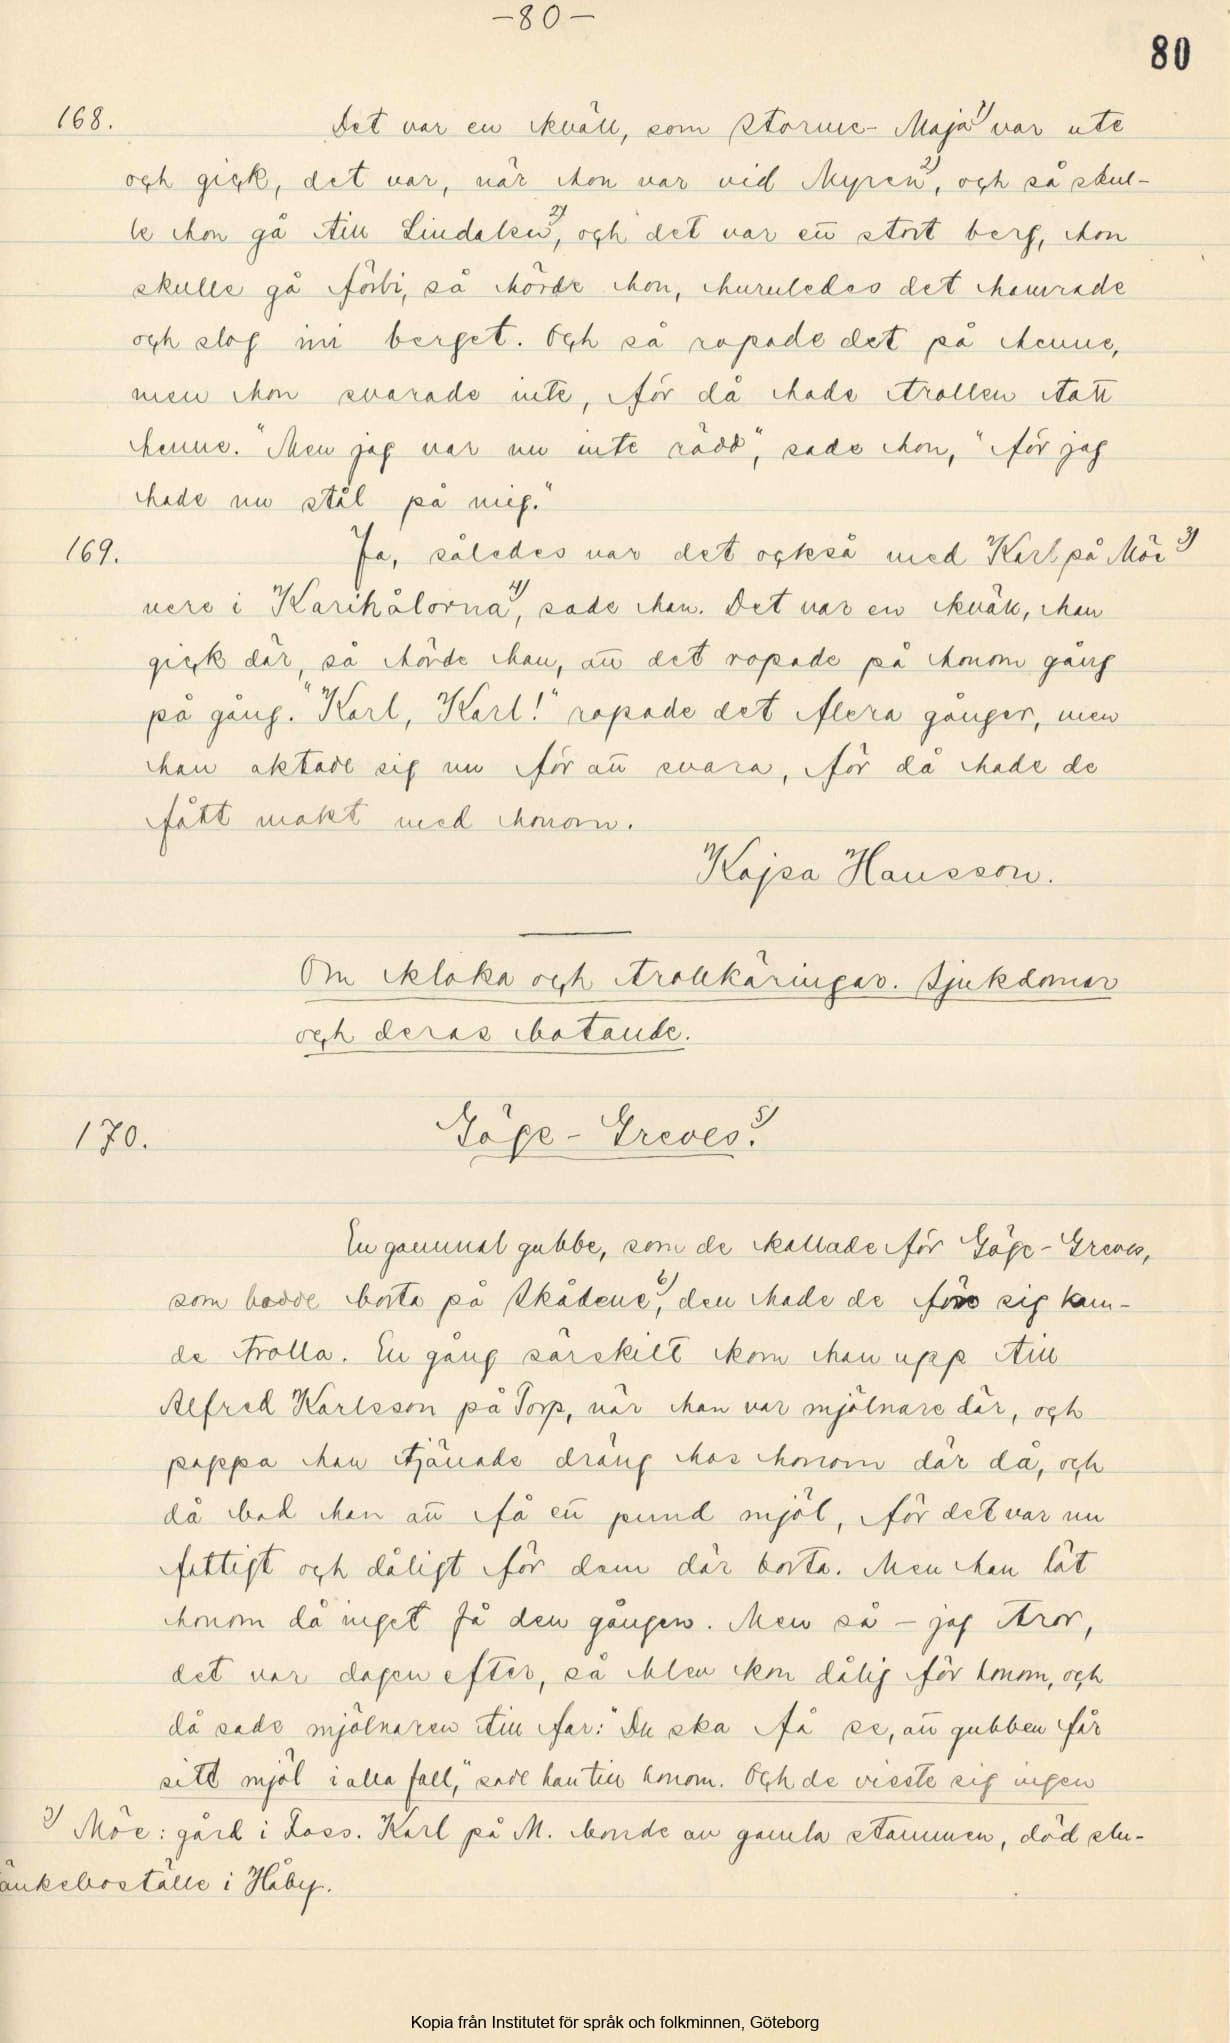 —80—
80
168. Det var en kväll, som Storme-Maja 1) var ute
och gick, det var, när hon var vid Myren 2), och så skul-
le hon gå till Lindalen 2), och det var ett stort berg, hon
skulle gå förbi, så hörde hon, huruledes det hamrade
och slog ini berget. Och så ropade det på henne,
men hon svarade inte, för då hade trollen tatt
henne. "Men jag var nu inte rädd", sade hon, "för jag
hade nu stål på mig."
169. Ja, således var det också med Karl på Möe 3)
nere i Karihålorna 4), sade han. Det var en kväll, han
gick där, så hörde han, att det ropade på honom gång
på gång. "Karl, Karl!" ropade det flera gånger, men
han aktade sig nu för att svara, för då hade de
fått makt med honom.
Kajsa Hansson.
Om kloka och trollkäringar. Sjukdomar
och deras botande.
170. Göge-Greves 5).
En gammal gubbe, som de kallade för Göge-Greves,
som bodde borta på Skådene 6), den hade de före sig kun-
de trolla. En gång särskilt kom han upp till
Alfred Karlsson på Torp, när han var mjölnare där, och
pappa han tjänade dräng hos honom där då, och
då bad han att få ett pund mjöl, för det var nu
fattigt och dåligt för dem där borta. Men han lät
honom då inget få den gången. Men så — jag tror,
det var dagen efter, så blev kon dålig för honom, och
då sade mjölnaren till far: "Du ska få se, att gubben får
sitt mjöl i alla fall," sade han till honom. Och de visste sig ingen
3) Möe: gård i Foss. Karl på M. bonde av gamla stammen, död slu-
änkeboställe i Håby.
Kopia från Institutet för språk och folkminnen, Göteborg